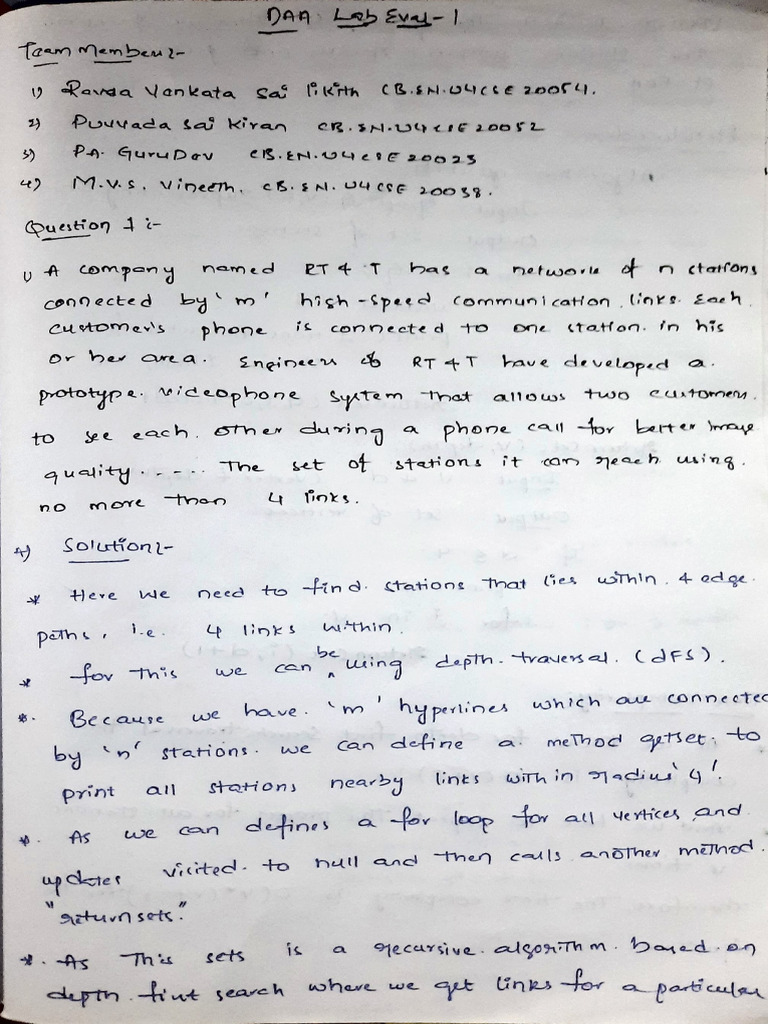 DAA Lab Eval-1
Team Members:-
1) Ravva Venkata Sai likith CB.EN.U4CSE20054.
2) Puvvada Sai Kiran CB.EN.U4CSE20052
3) P.A. GuruDev CB.EN.U4CSE20023
4) M.V.S. Vineeth. CB.EN.U4CSE20038.
Question 1 :-
1) A company named RT&T has a network of n stations
connected by 'm' high-speed communication links. Each
customer's phone is connected to one station. in his
or her area. Engineers of RT&T have developed a
prototype. videophone system that allows two customers.
to see each. other during a phone call for better image
quality...... The set of stations it can reach using.
no more than 4 links.
A) Solution:-
* Here we need to find. stations that lies within. 4 edge.
paths, i.e. 4 links within.
* for this we can be using depth. traversal. (dFS).
*. Because we have. 'm' hyperlines which are connected
by 'n' stations. we can define a method getset; to
print all stations nearby links within radius '4'.
*. As we can defines a for loop for all vertices, and
updates visited. to null and then calls another method.
"return sets."
*. As This sets is a recursive. algorithm. based. on
depth. first search where we get links for a particular